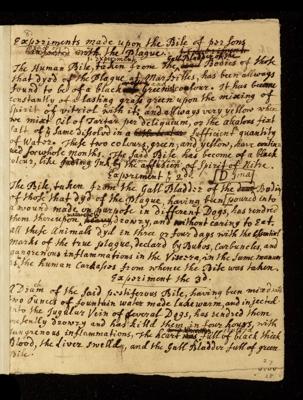 Experiments made upon the Bile of persons
with the Plague.
Experiment
The Human Bile, taken from the Bodies of those
that dyed of the Plague at Marseilles, has been always
found to be of a black Green colour. It has became
constantly of a lasting grass green upon the mixing of
spirit of vitriol with it; and allways very yellow when
we mixt Oil of Tartar per deliquium, or the alcaline fixt
salt of dissolved in a sufficient quantity
of Water. These two colours, green, and yellow, have continu-
ed for whole months. The said Bile has become of a black
colour, like Ink by the affusion of Spirit of Nitre.
Experiment ye 2d.
The Bile, taken from the Gall Bladder of the Bodies
of those that dyd of the Plague, having been poured into
a wound made on purpose in different Dogs, has rendred
them drowzy, and without caring to eat
all these Animals dyed in three or four days with the essential
marks of the true plague, declar'd by Bubos, Carbuncles, and
gangrenous inflammations in the Viscera, in the same manner
as the human Carkasses from whence the Bile was taken.
Experiment the 3d.
A Dram of the said pestiferous Bile, having been mixd with
two Ounces of fountain water made lukewarm, and injected
into the Jugular Vein of several Dogs, has rendred them
presently drowzy and has killd them in four hours, with
gangrenous inflammations, the heart full of black thick
Blood, the liver swelld, and the Gall Bladder full of green
Bile.